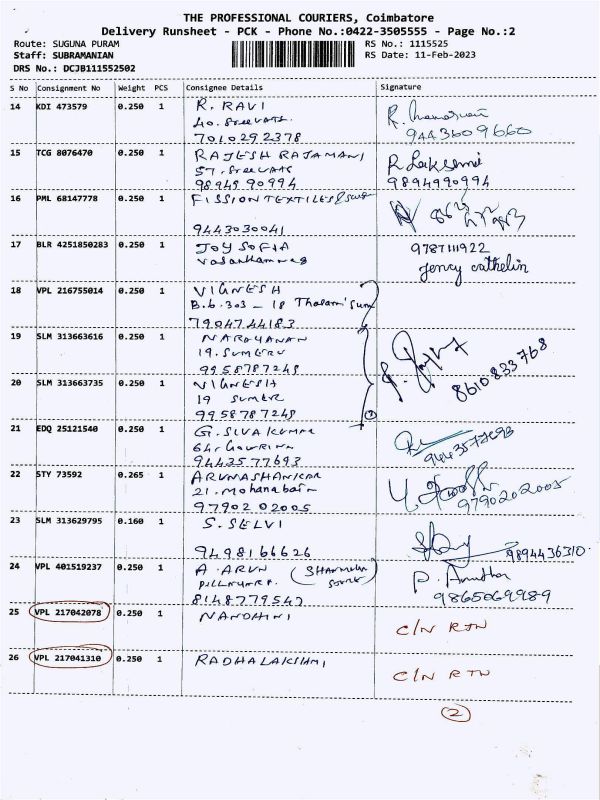 THE PROFESSIONAL COURIERS, Coimbatore
Delivery Runsheet - PCK - Phone No.:0422-3505555 - Page No.:2
Route: SUGUNA PURAM RS No.: 1115525
Staff: SUBRAMANIAN RS Date: 11-Feb-2023
DRS No.: DCJB111552502
S No Consignment No Weight PCS Consignee Details Signature
14 KDI 473579 0.250 1 R. RAVI
40. Sreevats.
7010292378 9443609660
15 TCG 8076470 0.250 1 RAJESH RAJAMANI R Laksemi
57. Sreevats
9894990994 9894990994
16 PML 68147778 0.250 1 FISSION TEXTILES
9443030041
17 BLR 4251850283 0.250 1 JOY SOFIA 9787111922
Jency cathelin
18 VPL 216755014 0.250 1 VIGNESH
B.b.303 - 18 Thalami
7904744183
19 SLM 313663616 0.250 1 NARAYANAN
19. SUMERU
9958787249 8610833768
20 SLM 313663735 0.250 1 VIGNESH
19 SUMER
9958787249
21 EDQ 25121540 0.250 1 G. SIVAKUMAR
64.
9443577693 9443577693
22 STY 73592 0.265 1 ARUNASHANKAR
21. Mohanabari
9790202005 9790202005
23 SLM 313629795 0.160 1 S. SELVI
9498166626 9894436310.
24 VPL 401519237 0.250 1 A. ARUN
8148779547 9865069989
25 VPL 217042078 0.250 1 NANDHINI C/N RTN
26 VPL 217041310 0.250 1 RADHALAKSHMI C/N RTN
2